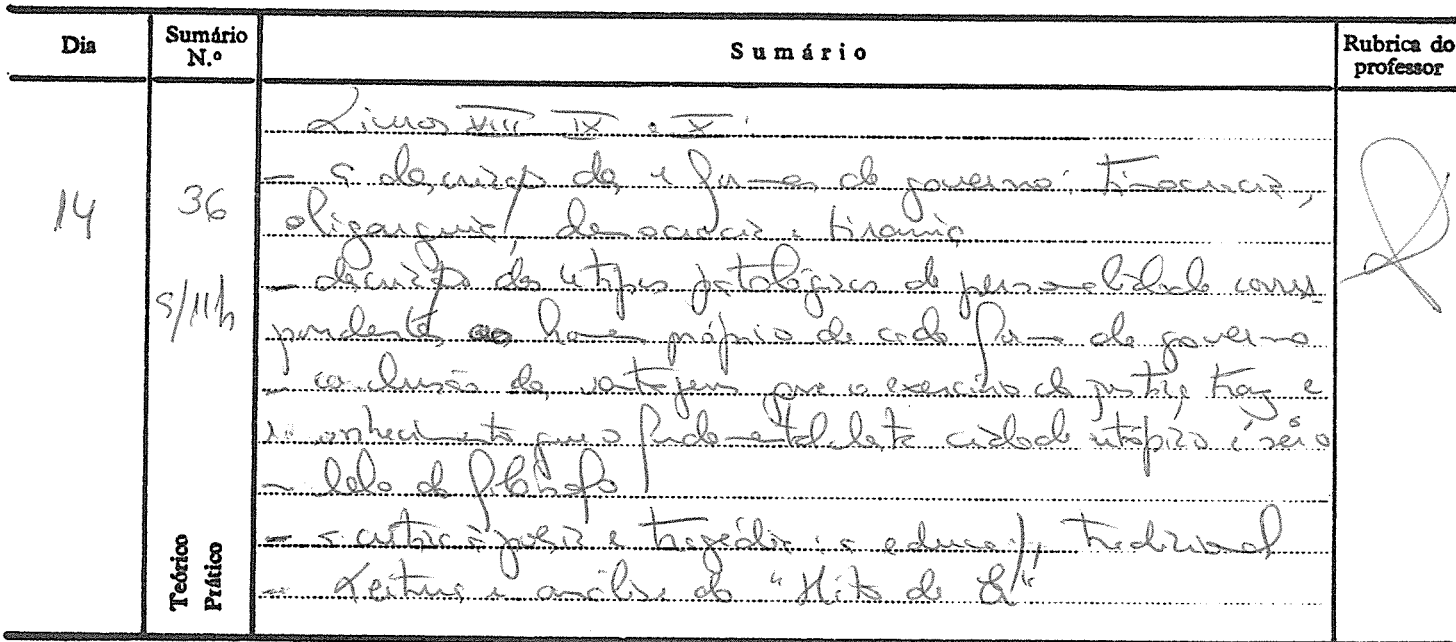 Dia
Sumário N.º
Sumário
Rubrica do professor
14
36
9/11h
Livros VIII IX e X:
- a descrição das 4 formas de governo: timocracia,
oligarquia, democracia e tirania
- descrição dos 4 tipos patológicos de personalidade corres
pondentes ao homem próprio de cada forma de governo
- conclusão das vantagens que o exercício da justiça traz e
reconhecimento que o fundamental desta cidade utópica é ser o
- do filósofo
- a crítica à poesia e tragédia: a educação tradicional
- Leitura e análise do "Mito de Er"
Teórico
Prático